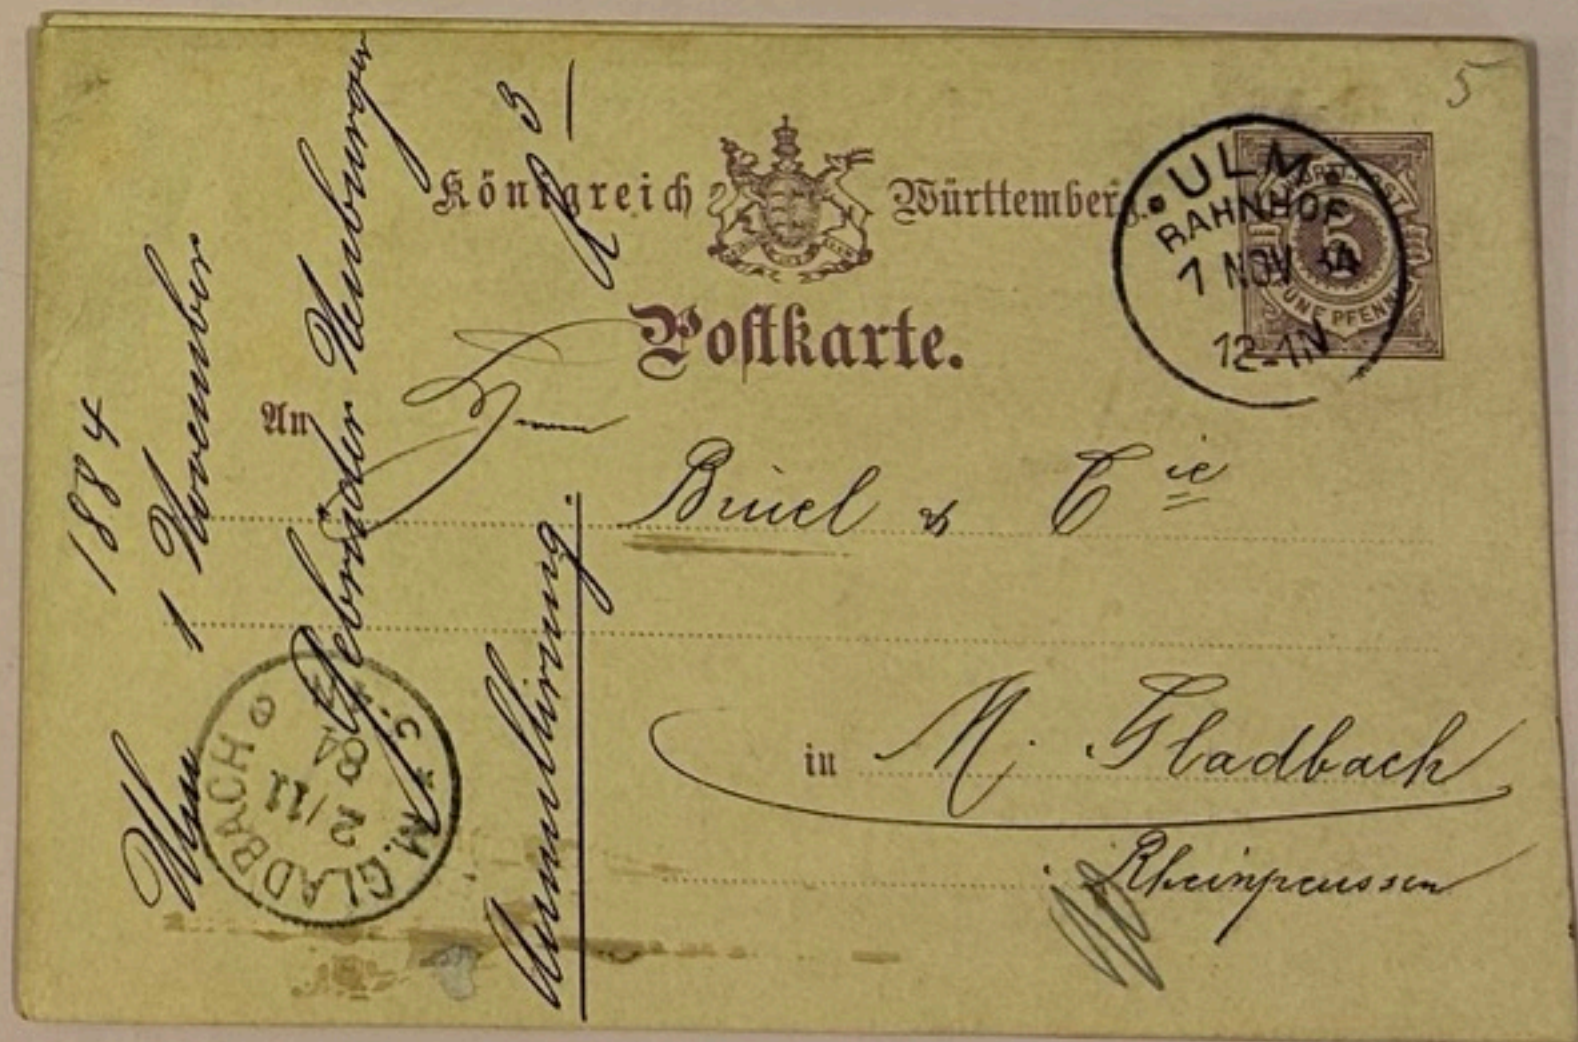 5
Königreich Württemberg.
Postkarte.
ULM
BAHNHOF
1 NOV 84
12-1N
FÜNF PFENNIG
5
An
Herrn
Brüel & Cie
in M. Gladbach
Rheinpreussen
1884
Ulm 1 November
Gebrüder Neuburger
3
M. GLADBACH
2/11
84